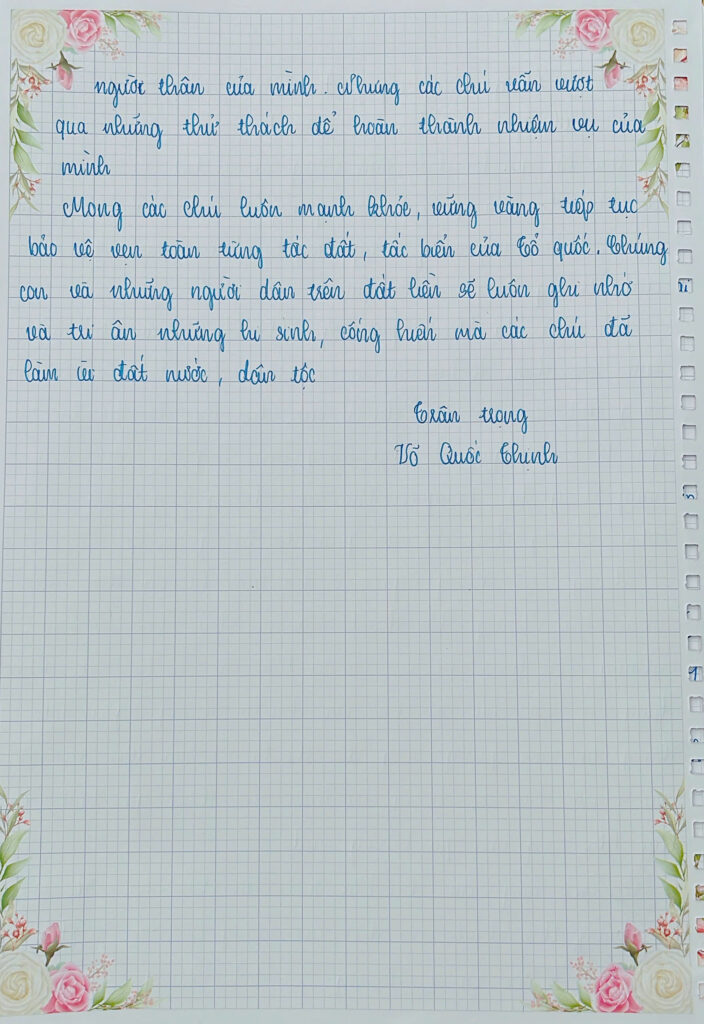 người thân của mình. Nhưng các chú vẫn vượt
qua những thử thách để hoàn thành nhiệm vụ của
mình
Mong các chú luôn mạnh khỏe, vững vàng tiếp tục
bảo vệ vẹn toàn từng tấc đất, tấc biển của Tổ quốc. Chúng
con và những người dân trên đất liền sẽ luôn ghi nhớ
và tri ân những hi sinh, cống hiến mà các chú đã
làm vì đất nước, dân tộc
Trân trọng
Võ Quốc Thịnh